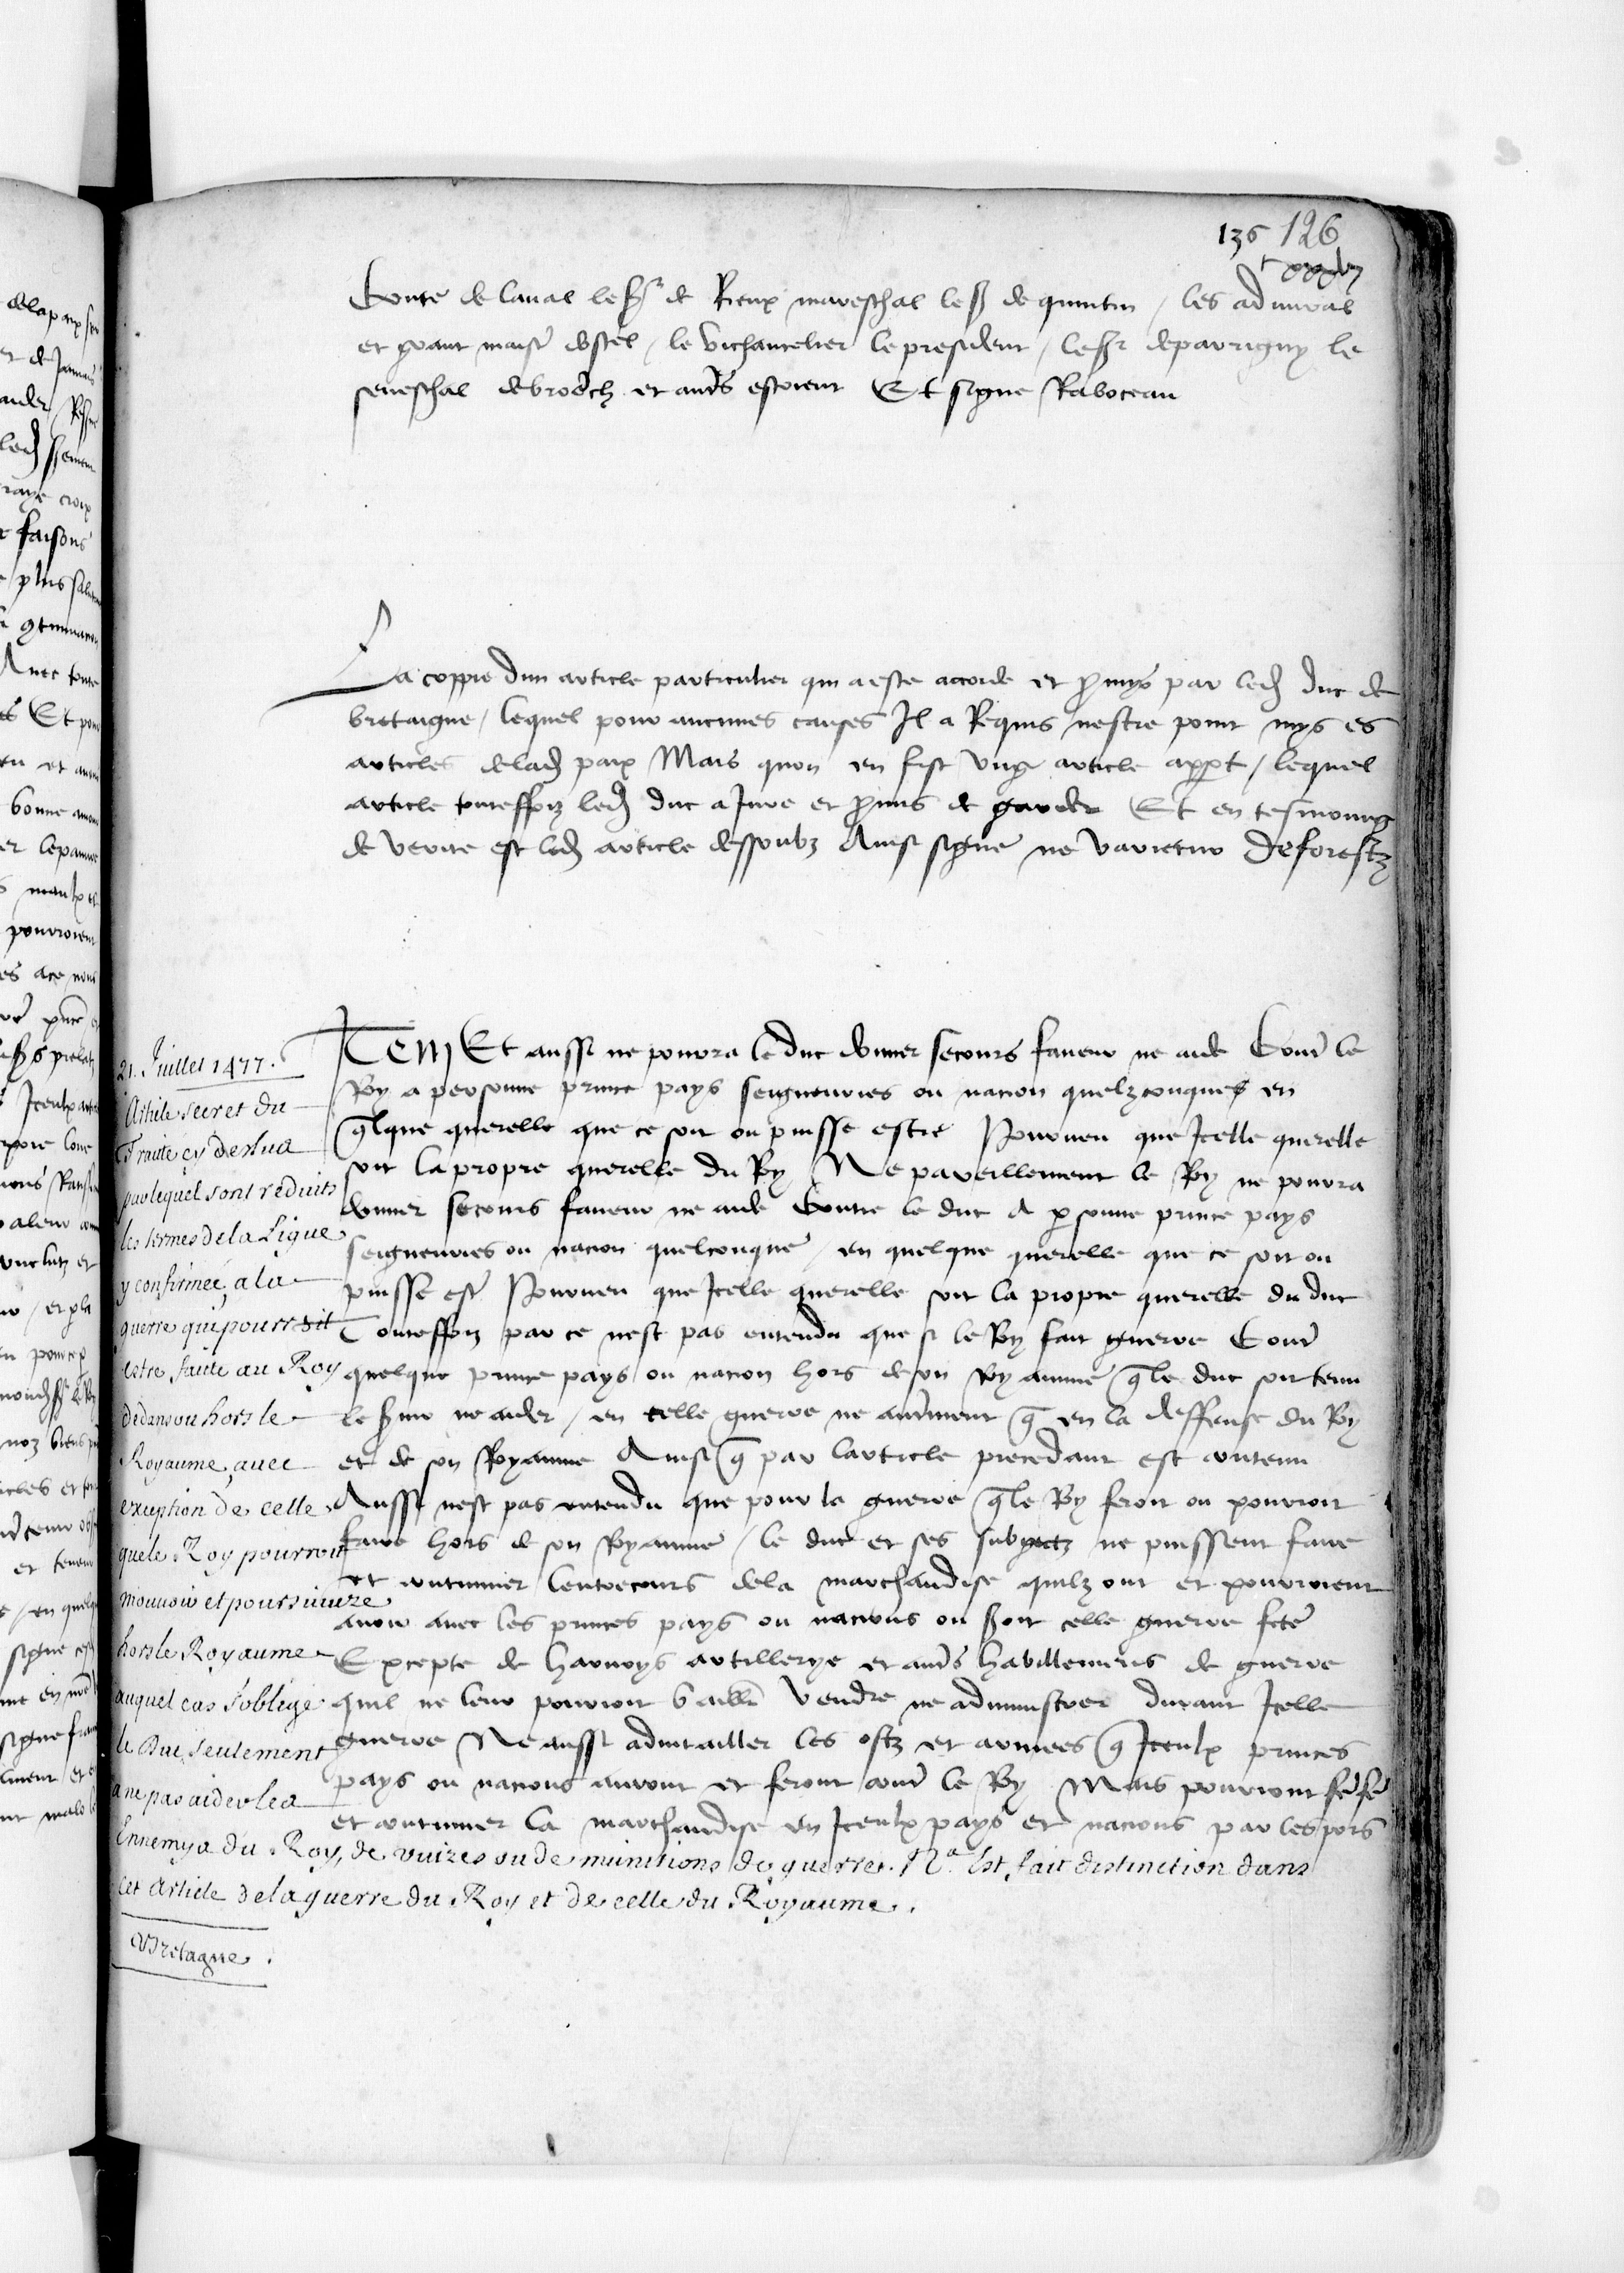 136 126
Conte de laual le sr de Rieux mareschal le sr de quintin / les admiral
et grant maistre dostel / le vichancelier le president / le sr de parrigny le
seneschal de broerech et autrs estoient Et signe Raboceau
La coppie dun article particulier qui a este accorde et promys par led duc de
bretaigne / lequel pour aucunes causes Il a Requis nestre point mys es
articles de lad paix Mais quon en fist ung article appart / lequel
article touteffoiz led duc a Jure et promis de garder Et en tesmoing
de verite est led article dessoubz Ainsi signe ne varietur Deforestz
21. Juillet 1477.
Article secret du
Traité cy dessus
par lequel sont reduits
les termes de la Ligue
y confirmée, a la
guerre qui pourroit
estre faite au Roy
dedans ou hors le
Royaume, avec
exception de celle
que le Roy pourroit
mouvoir et poursuivre
hors le Royaume
auquel cas s'oblige
le Duc seulement
a ne pas aider les
Ennemys du Roy, de vivres ou de munitions de guerre. Na. Est fait distinction dans
cet Article de la guerre du Roy et de celle du Royaume.
Bretagne.
Item Et aussi ne pourra le duc donner secours faueur ne aide Contr le
Roy a personne prince pays seigneuries ou nacion quelzconques en
qlque querelle que ce soit ou puisse estre Pourueu que Icelle querelle
soit la propre querelle du Roy Ne pareillement le Roy ne pourra
donner secours faueur ne aide Contre le duc A personne prince pays
seigneuries ou nacion quelconque / en quelque querelle que ce soit ou
puisse estr Pourueu que Icelle querelle soit la propre querelle du duc
Touteffoiz par ce nest pas entendu que si le Roy fait guerre Contr
quelque prince pays ou nacion hors de son Royaume q le duc soit tenu
le seruir ne aider / en telle guerre ne autrment q en la deffense du Roy
et de son Royaume Ainsi q par larticle precedant est contenu
Aussi nest pas entendu que pour la guerre q le Roy feroit ou pourroit
faire hors de son Royaume / le duc et ses subgectz ne puissent faire
et continuer lentrecours de la marchandise quilz ont et pourroient
auoir auec les princes pays ou nacions ou seroit celle guerre fcte
Excepte de harnoys artillerye et autrs habillemens de guerre
quil ne leur pourroit bailler vendre ne administrer durant Icelle
guerre Ne aussi aduitailler les ostz et armees q Iceulx princes
pays ou nacions auront et feront contr le Roy Mais pourront
et continuer la marchandise en Iceulx pays et nacions par les pors